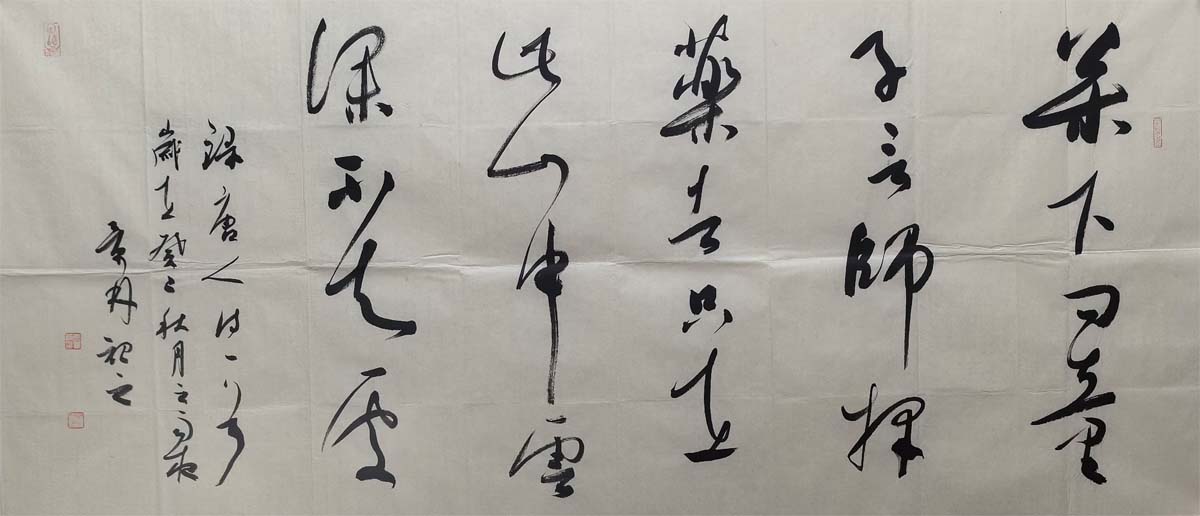 枩下問童
子言師採
藥去只在
此山中雲
深不知處
錄唐人詩一首
歲在癸 秋月之
記之